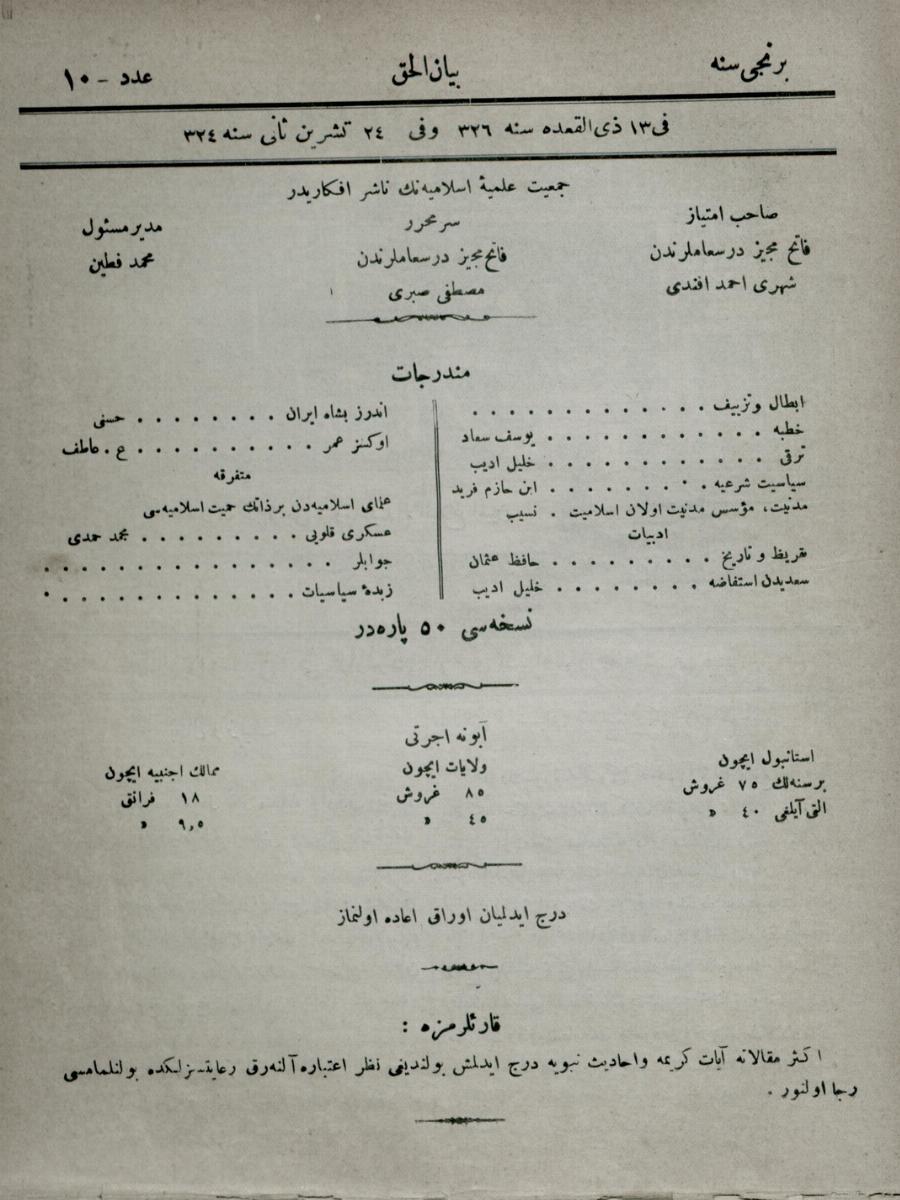 برنجی سنه بیان الحق عدد - ١٠
فی ١٣ ذی القعده سنه ٣٢٦ وفی ٢٤ تشرین ثانی سنه ٣٢٤
جمعیت علمیهٔ اسلامیه‌نك ناشر افكاریدر
صاحب امتیاز
فاتح مجیز درسعاملرندن
شهری احمد افندی
سر محرر
فاتح مجیز درسعاملرندن
مصطفی صبری
مدیر مسئول
محمد فطین
مندرجات
ابطال وتزییف . . . . . . . . . . . . .
خطبه . . . . . . . . . . . یوسف سعاد
ترقی . . . . . . . . . . . خلیل ادیب
سیاسیت شرعیه . . . . . . . ابن حازم فرید
مدنیت، مؤسس مدنیت اولان اسلامیت . نسیب
ادبیات
تقریظ و تاریخ . . . . . . . . . حافظ عثمان
سعدیدن استفاضه . . . . . . . . خلیل ادیب
اندرز بشاه ایران . . . . . . . . حسنی
اوكسز عمر . . . . . . . . . . ع . عاطف
متفرقه
علمای اسلامیه‌دن برذاتك حمیت اسلامیه‌سی
عسكری قلوبی . . . . . . . . . محمد حمدی
جوابلر . . . . . . . . . . . . . . . .
زبدهٔ سیاسیات . . . . . . . . . . . . .
نسخه‌سی ٥٠ پاره‌در
آبونه اجرتی
استانبول ایچون
برسنه‌لك ٧٥ غروش
التی آیلغی ٤٠ »
ولایات ایچون
٨٥ غروش
٤٥ »
ممالك اجنبیه ایچون
١٨ فرانق
٩,٥ »
درج ایدلمیان اوراق اعاده اولنماز
قارئلرمزه :
اكثر مقالاته آیات كریمه واحادیث نبویه درج ایدلمش بولندیغی نظر اعتباره آلنه‌رق رعایتسزلكده بولنلمامسی
رجا اولنور .